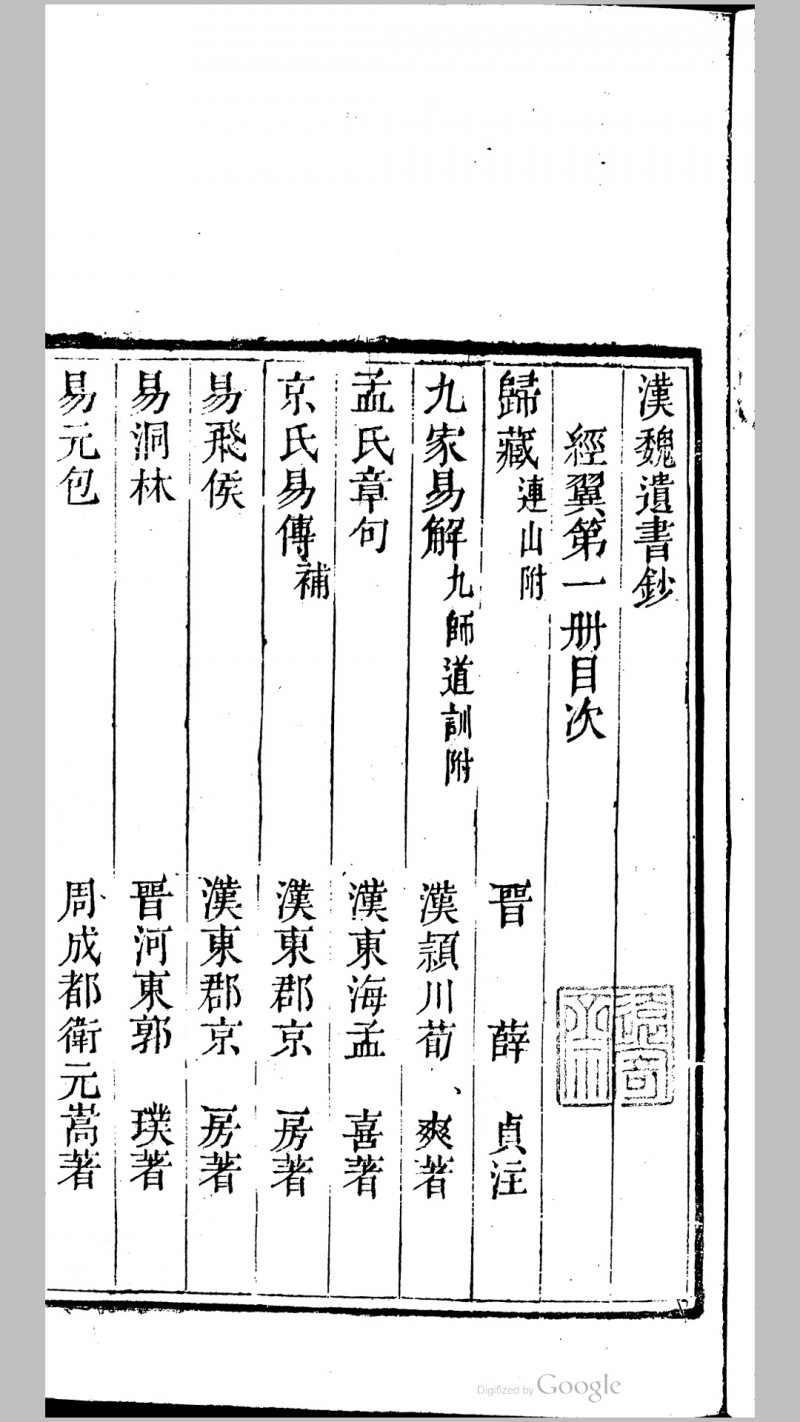 漢魏遺書鈔
經翼第一册目次
歸藏連山附 晋 薛 貞注
九家易解九師道訓附 漢潁川荀、爽著
孟氏章句 漢東海孟 喜著
京氏易傳補 漢東郡京 房著
易飛侯 漢東郡京 房著
易洞林 晋河東郭 璞著
易元包 周成都衛元嵩著
Digitized by Google